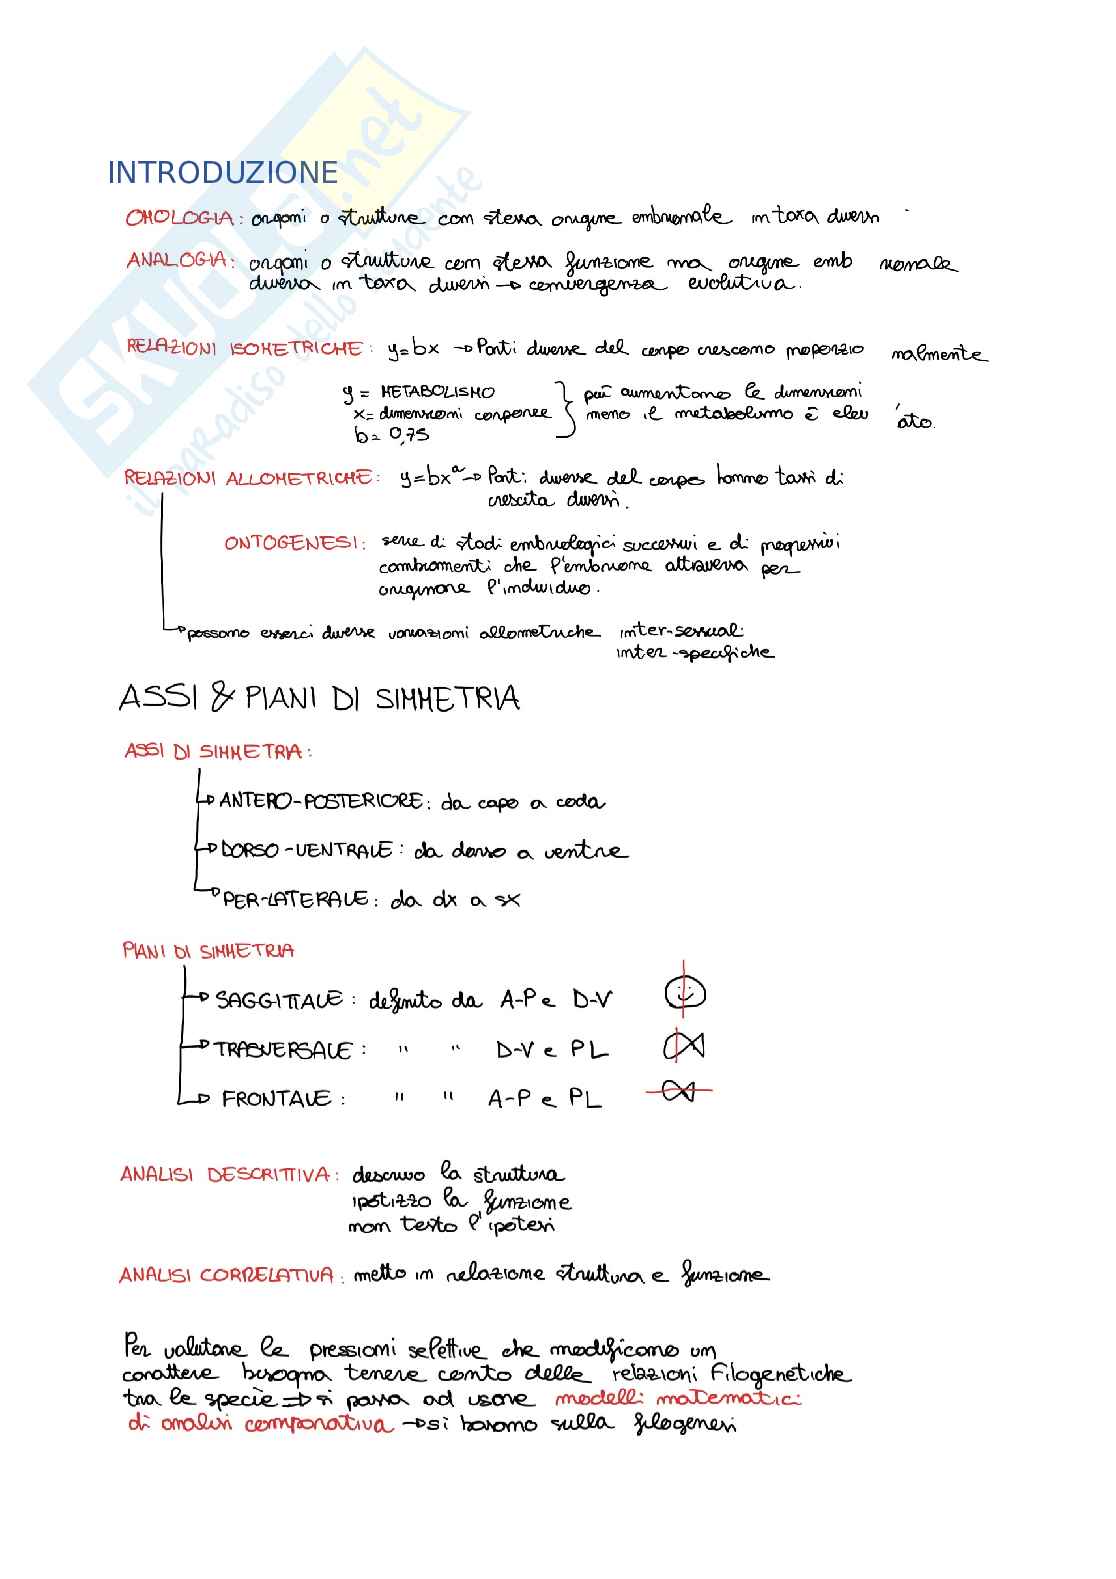 SKUOLA.net
il paradiso dello studente
INTRODUZIONE
OMOLOGIA: organi o strutture con stessa origine embrionale in taxa diversi
ANALOGIA: organi o strutture con stessa funzione ma origine emb rionale
diversa in taxa diversi → convergenza evolutiva.
RELAZIONI ISOMETRICHE: y=bx → Parti diverse del corpo crescono proporzio nalmente
y = METABOLISMO
x= dimensioni corporee
b= 0,75
più aumentano le dimensioni
meno il metabolismo è elev ato.
RELAZIONI ALLOMETRICHE: y=bxᵃ → Parti diverse del corpo hanno tassi di
crescita diversi.
ONTOGENESI: serie di stadi embriologici successivi e di progressivi
cambiamenti che l'embrione attraversa per
originare l'individuo.
→ possono esserci diverse variazioni allometriche inter-sessuali
inter-specifiche
ASSI & PIANI DI SIMMETRIA
ASSI DI SIMMETRA:
→ ANTERO-POSTERIORE: da capo a coda
→ DORSO-VENTRALE: da dorso a ventre
→ PER-LATERALE: da dx a sx
PIANI DI SIMMETRIA
→ SAGGITTALE: definito da A-P e D-V
→ TRASVERSALE: " " D-V e PL
→ FRONTALE: " " A-P e PL
ANALISI DESCRITTIVA: descrivo la struttura
ipotizzo la funzione
non testo l'ipotesi
ANALISI CORRELATIVA: metto in relazione struttura e funzione
Per valutare le pressioni selettive che modificano un
carattere bisogna tenere conto delle relazioni Filogenetiche
tra le specie ⇒ si passa ad usare modelli matematici
di analisi comparativa → si basano sulla filogenesi